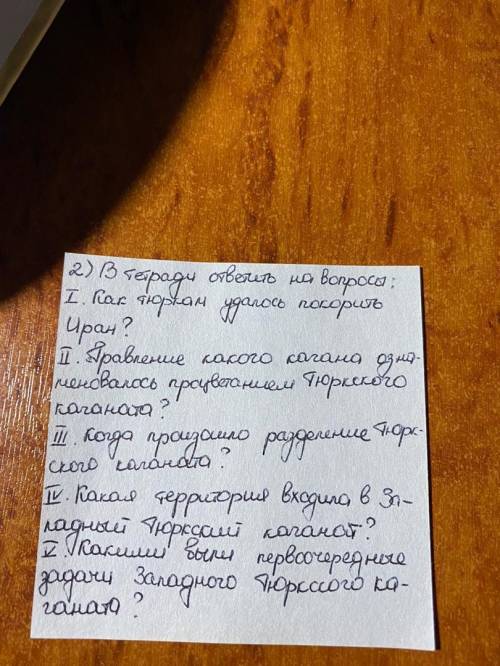 2) В тетради ответить на вопросы:
I. Как тюркам удалось покорить
Иран?
II. Правление какого кагана озна-
меновалось процветанием Тюркского
каганата?
III. Когда произошло разделение Тюрк-
ского каганата?
IV. Какая территория входила в За-
падный Тюркский каганат?
V. Какими были первоочередные
задачи Западного Тюркского ка-
ганата?